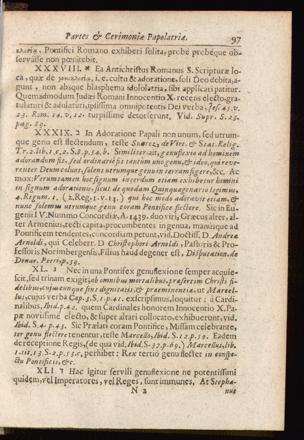 Partes & Cerimoniæ Papelatriæ. 97
Pontifici Romano exhiberi solita, probe probèque ob-
servâsse non pœnitebit.
XXXVIII. Ea Antichristus Romanus S. Scripturæ lo-
ca, quæ de i. e. cultu & adoratione, soli Deo debita, a-
gunt, non absque blasphema idololatria, sibi applicari patitur.
Quemadmodum Judæi Romani Innocentio X. recens electo gra-
tulaturi & adulaturi, ipsissima omnipotentis Dei verba, Jes. 45. v.
23. Rom. 14. v. 12. turpissime detorserunt, Vid. Supr. S. 25.
pag. 89.
XXXIX. In Adoratione Papali non unum, sed utrum-
que genu est flectendum, teste Suarez, de Virt. & Stat. Relig.
Tr. 2. lib. 1. c. 2. S. 8. p. 14. b. Similiter ait, genuflexio ad hominem
adorandum fit. sed ordinariè fit tantum uno genu, & ideo, qui reve-
renter Deum colunt, solent utrumque genu in terram figere, &c. Ad-
mox: Veruntamen hoc signum interdum etiam exhibetur homini
in signum adorationis, sicut de quodam Quinquagenario legimus,
4. Regum. 1. (2. Reg. 1. v. 13.) qui hoc modo adoravit etiam, &
nunc solemus utrumque genu coram Pontifice flectere. Sic in Eu-
genii IV. Nummo Concordiæ, A. 1439. duo viri, Græcus alter, al-
ter Armenius, tecti capita procumbentes in genua, manúsque ad
Pontificem tendentes, concordiam petunt, vid. Doctiss. D. Andreæ
Arnoldi, qui Celeberr. D. Christophori Arnoldi, Pastoris & Pro-
fessoris Norimbergensis, Filius haud degener est, Disputation. de
Denar. Petri p. 39.
XL. Nec in una Pontifex genuflexione semper acquie-
scit, sed trinam exigit, ab omnibus mortalibus, præsertim Christi fi-
delibus, cujuscunque sint dignitatis, & præeminentiæ, ut Marcel-
lus, cujus verba Cap. 3. S. 1. p. 41. exscripsimus, loquitur: à Cardi-
nalibus, Ibid. p. 42. quem Cardinales honorem Innocentio X. Pa-
pæ novissime electo, & super altari collocato, exhibuerunt, vid.
Ibid. S. 4. p. 43. Sic Prælati coram Pontifice, Missam celebrante,
ter genu flectere tenentur, teste Marcello, Ibid. S. 12. p. 59. Eadem
de receptione Regis, (de qua vid. Ibid. S. 37. p. 69.) Marcellus, lib.
1. tit. 13. S. 2. p. 53. c, perhibet: Rex tertiò genu flectet in conspe-
ctu Pontificis, &c.
XLI. Hac igitur servili genuflexione ne potentissimi
quidem, vel Imperatores, vel Reges, sunt immunes. At Stepha-
N 2 nus